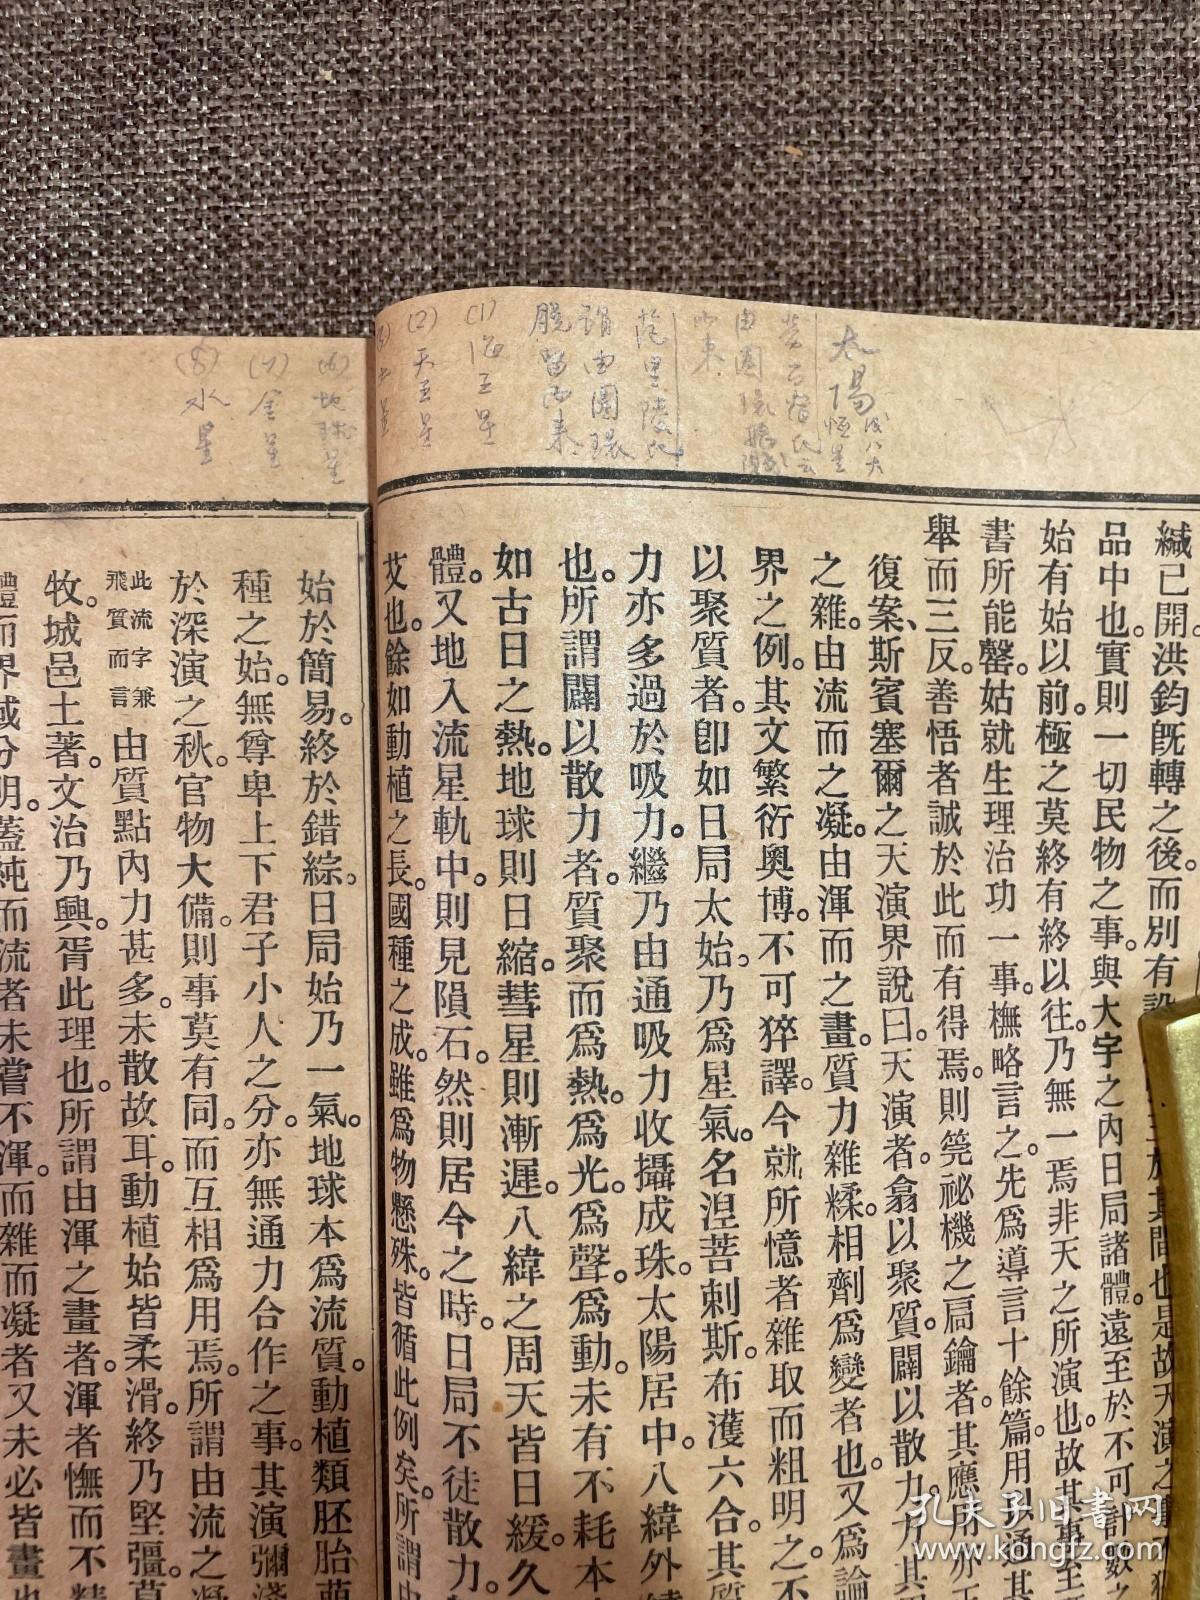 太陽
恒星
(1) 海王星
(2) 天王星
(6) 地球星
(7) 金星
(8) 水星
緘已開。洪鈞既轉之後。而別有設
品中也。實則一切民物之事。與大宇之內日局諸體。遠至於不可計數之
始有始以前。極之莫終有終以往。乃無一焉非天之所演也。故其事至
書所能罄。姑就生理治功一事。橅略言之。先爲導言十餘篇。用以通其
舉而三反。善悟者誠於此而有得焉。則筦祕機之扃鑰者。其應用亦正
復案、斯賓塞爾之天演界說曰。天演者。翕以聚質。闢以散力。方其
之雜。由流而之凝。由渾而之畫。質力雜糅。相劑爲變者也。又爲論
界之例。其文繁衍奧博。不可猝譯。今就所憶者雜取而粗明之。不
以聚質者。卽如日局太始。乃爲星氣。名涅菩剌斯。布濩六合。其質
力亦多過於吸力。繼乃由通吸力收攝成珠。太陽居中。八緯外
也。所謂闢以散力者。質聚而爲熱。爲光。爲聲。爲動。未有不耗本
如古日之熱。地球則日縮。彗星則漸遲。八緯之周天皆日緩。久
體。又地入流星軌中。則見隕石。然則居今之時。日局不徒散力。
艾也。餘如動植之長。國種之成。雖爲物懸殊。皆循此例矣。所謂由
始於簡易。終於錯綜。日局始乃一氣。地球本爲流質。動植類胚胎萌
種之始。無尊卑上下君子小人之分。亦無通力合作之事。其演彌淺
於深演之秋。官物大備。則事莫有同。而互相爲用焉。所謂由流之凝
此流字兼
飛質而言
由質點內力甚多。未散故耳。動植始皆柔滑。終乃堅彊。草
牧。城邑土著。文治乃興。胥此理也。所謂由渾之畫者。渾者憮而不精
體而界域分明。蓋純而流者未嘗不渾。而雜而凝者又未必皆畫也
孔夫子旧书网
www.kongfz.com